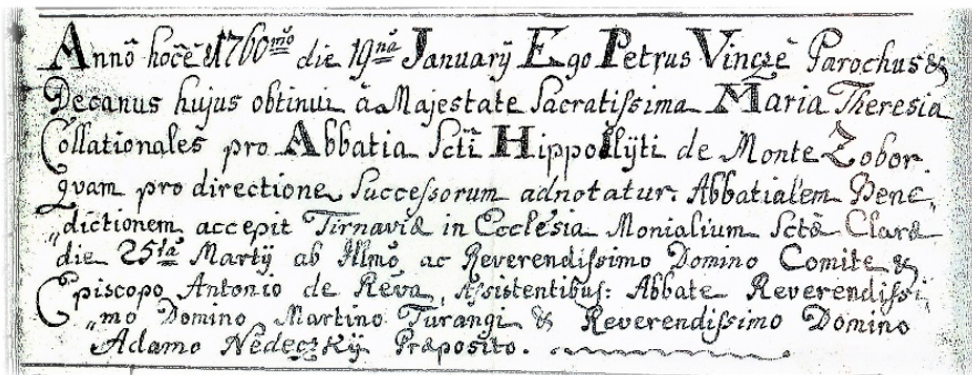 Annō hocē 1760mō die 19nā Januarÿ Ego Petrus Vinczė Parochus &
Decanus hujus obtinui ā Majestate Sacratissima Maria Theresia
Collationales pro Abbatia Sctī Hippollÿti de Monte Zobor.
Qvam pro directione Successorum adnotatur: Abbatialem Bene„
„dictionem accepit Tirnaviæ in Ecclesia Monialium Sctæ Claræ
die 25tā Martÿ ab Illmō ac Reverendissimo Domino Comite &
Episcopo Antonio de Reva, Assistentibus: Abbate Reverendissi„
„mo Domino Martino Turangi & Reverendissimo Domino
Adamo Nedeczkÿ Præposito.